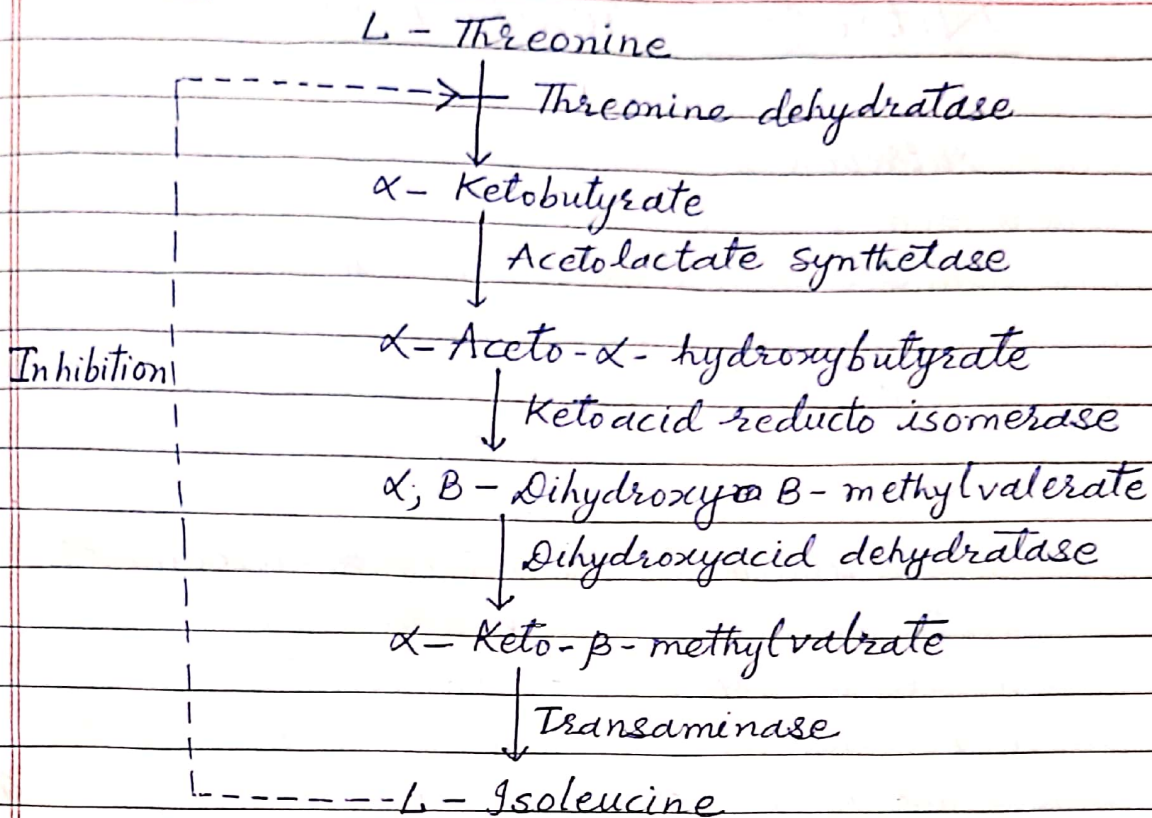 L - Threonine
Threonine dehydratase
α- Ketobutyrate
Acetolactate synthetase
α- Aceto-α- hydroxybutyrate
Inhibition
Ketoacid reducto isomerase
α, B - Dihydroxy B- methylvalerate
Dihydroxyacid dehydratase
α- Keto-β-methylvalrate
Transaminase
L - Isoleucine